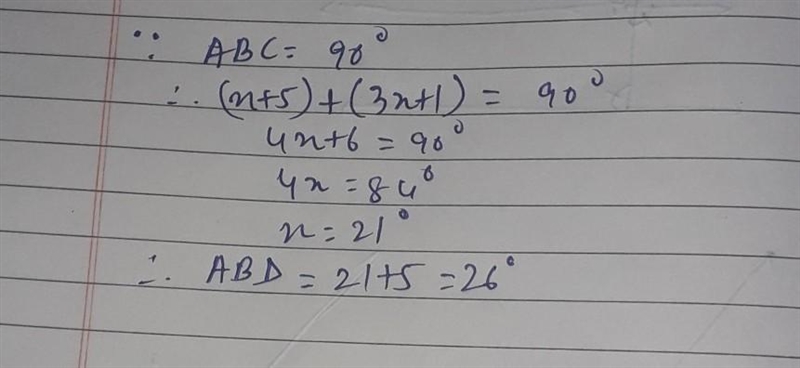 ∵ ABC = 90°
∴ (x+5)+(3x+1) = 90°
4x+6 = 90°
4x = 84°
x = 21°
∴ ABD = 21+5 = 26°